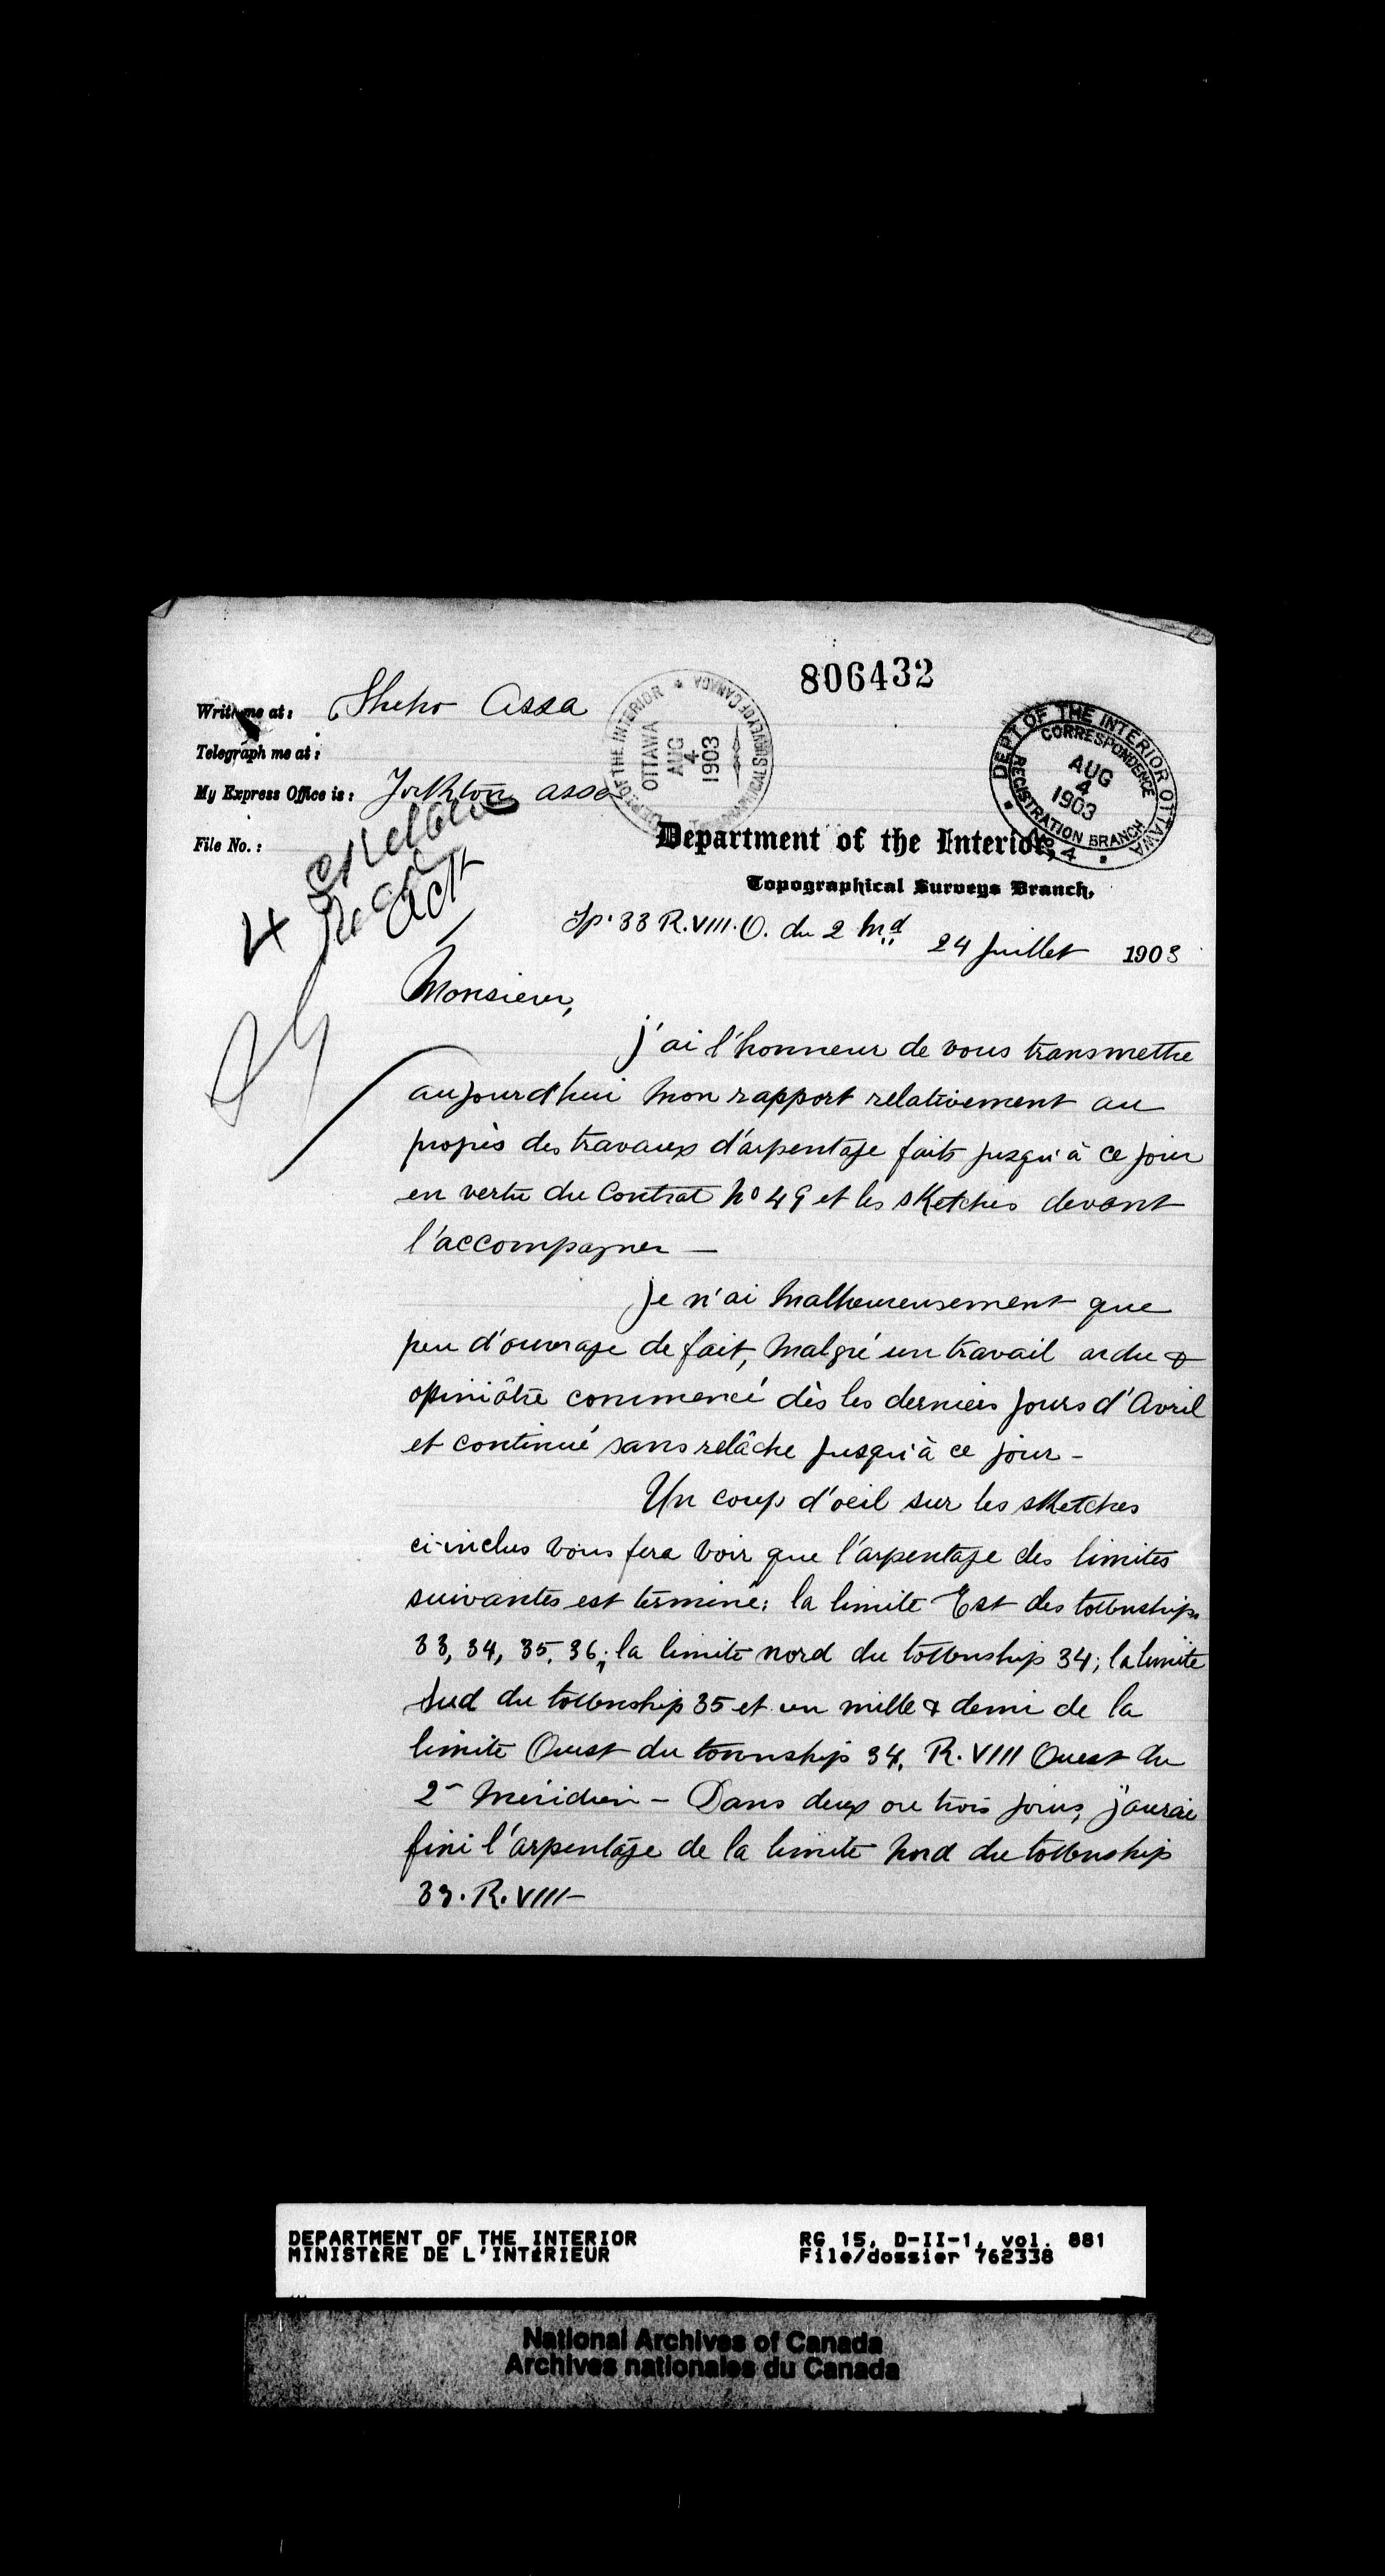 806432
Write me at: Sheho Assa
Telegraph me at:
My Express Office is: Yorkton assa
File No.:
DEPT OF THE INTERIOR
OTTAWA
AUG
4
1903
TOPOGRAPHICAL SURVEY OF CANADA
DEPT OF THE INTERIOR OTTAWA
CORRESPONDENCE
AUG
4
1903
REGISTRATION BRANCH
Department of the Interior,
Topographical Surveys Branch,
4
Ack
Tp. 33 R. VIII. O. du 2 Md 24 Juillet 1903
Monsieur,
j'ai l'honneur de vous transmettre
aujourd'hui mon rapport relativement au
progrès des travaux d'arpentage faits jusqu'à ce jour
en vertu du Contrat No 49 et les sketches devant
l'accompagner —
Je n'ai malheureusement que
peu d'ouvrage de fait, malgré un travail ardu &
opiniâtre commencé dès les derniers jours d'Avril
et continué sans relâche jusqu'à ce jour -
Un coup d'oeil sur les sketches
ci-inclus vous fera voir que l'arpentage des limites
suivantes est terminé: la limite Est des townships
33, 34, 35, 36; la limite nord du township 34; la limite
Sud du township 35 et un mille & demi de la
limite Ouest du township 34, R. VIII Ouest du
2e Méridien - Dans deux ou trois jours, j'aurai
fini l'arpentage de la limite Nord du township
33. R. VIII -
DEPARTMENT OF THE INTERIOR RG 15, D-II-1, vol. 881
MINISTÈRE DE L'INTÉRIEUR File/dossier 762338
National Archives of Canada
Archives nationales du Canada